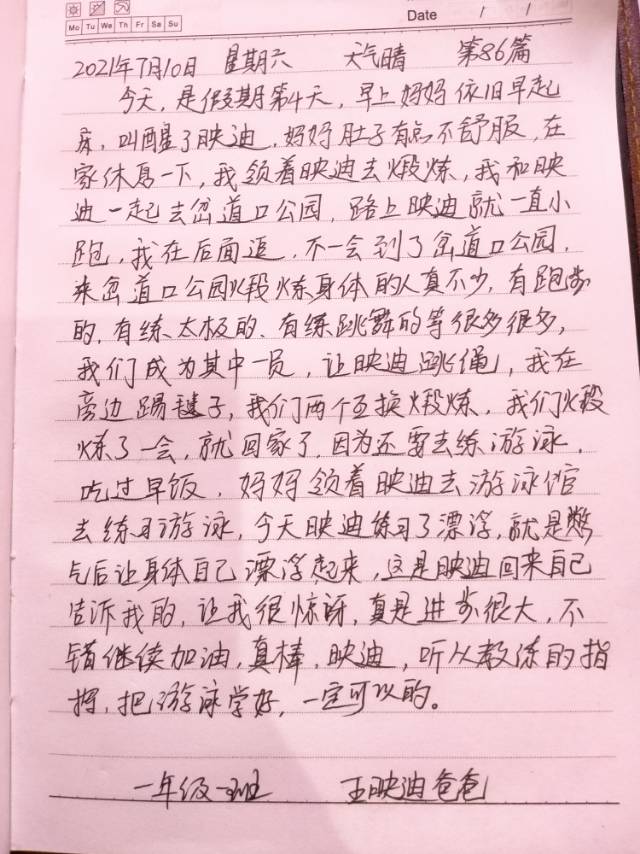 Mo Tu We Th Fr Sa Su
Date / /
2021年7月10日 星期六 天气晴 第86篇
今天,是假期第4天,早上妈妈依旧早起
床,叫醒了映迪,妈妈肚子有点不舒服,在
家休息一下,我领着映迪去煅炼,我和映
迪一起去岔道口公园,路上映迪就一直小
跑,我在后面追,不一会到了岔道口公园,
来岔道口公园煅炼身体的人真不少,有跑步
的,有练太极的、有练跳舞的等很多很多,
我们成为其中一员,让映迪跳绳,我在
旁边踢毽子,我们两个互换煅炼,我们煅
炼了一会,就回家了,因为还要去练游泳,
吃过早饭,妈妈领着映迪去游泳馆
去练习游泳,今天映迪练习了漂浮,就是憋
气后让身体自己漂浮起来,这是映迪回来自己
告诉我的,让我很惊讶,真是进步很大,不
错继续加油,真棒,映迪,听从教练的指
挥,把游泳学好,一定可以的。
一年级一班 王映迪爸爸